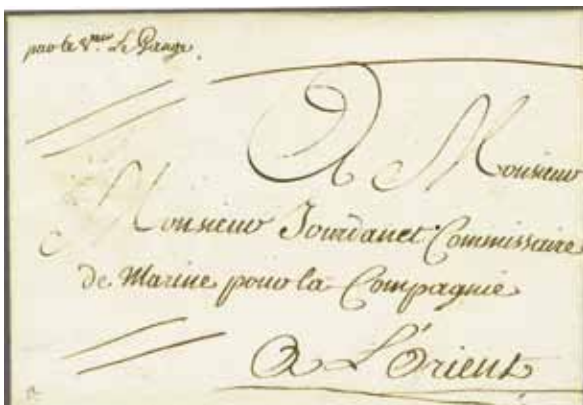 par le V.eau Le Gange
A Monsieur
Monsieur Jourdanet Commissaire
de Marine pour la Compagnie
A L'Orient